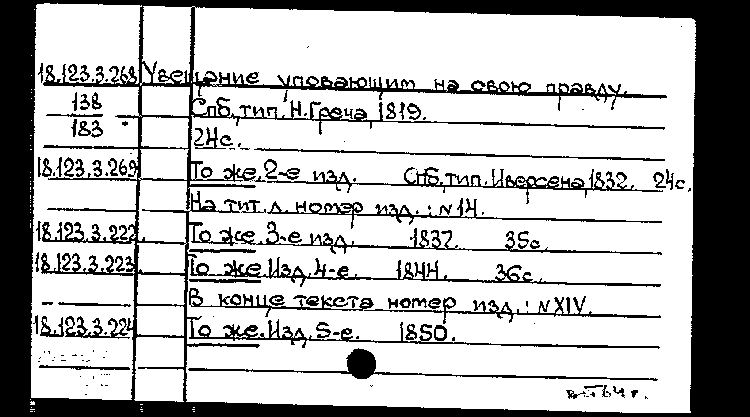 18.123.3.268 Увещание уповающим на свою правду.
138 Спб, тип. Н. Греча, 1819.
183 24с.
18.123.3.269 То же. 2-е изд. Спб, тип. Иверсена, 1832. 24с.
На тит. л. номер изд.: N 14.
18.123.3.222. То же. 3-е изд. 1837. 35с.
18.123.3.223. То же. Изд. 4-е. 1844. 36с.
В конце текста номер изд.: N XIV.
18.123.3.224 То же. Изд. 5-е. 1850.
64 г.